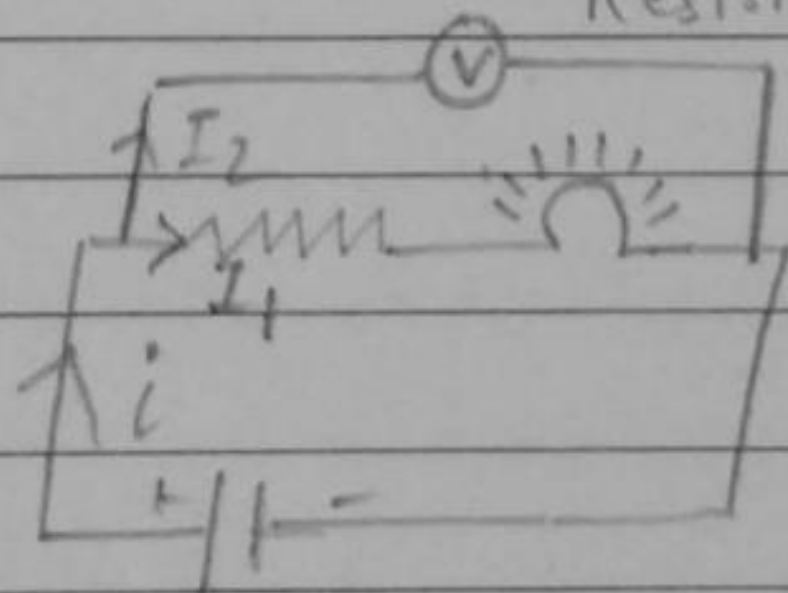 V
I2
I1
i
+ -